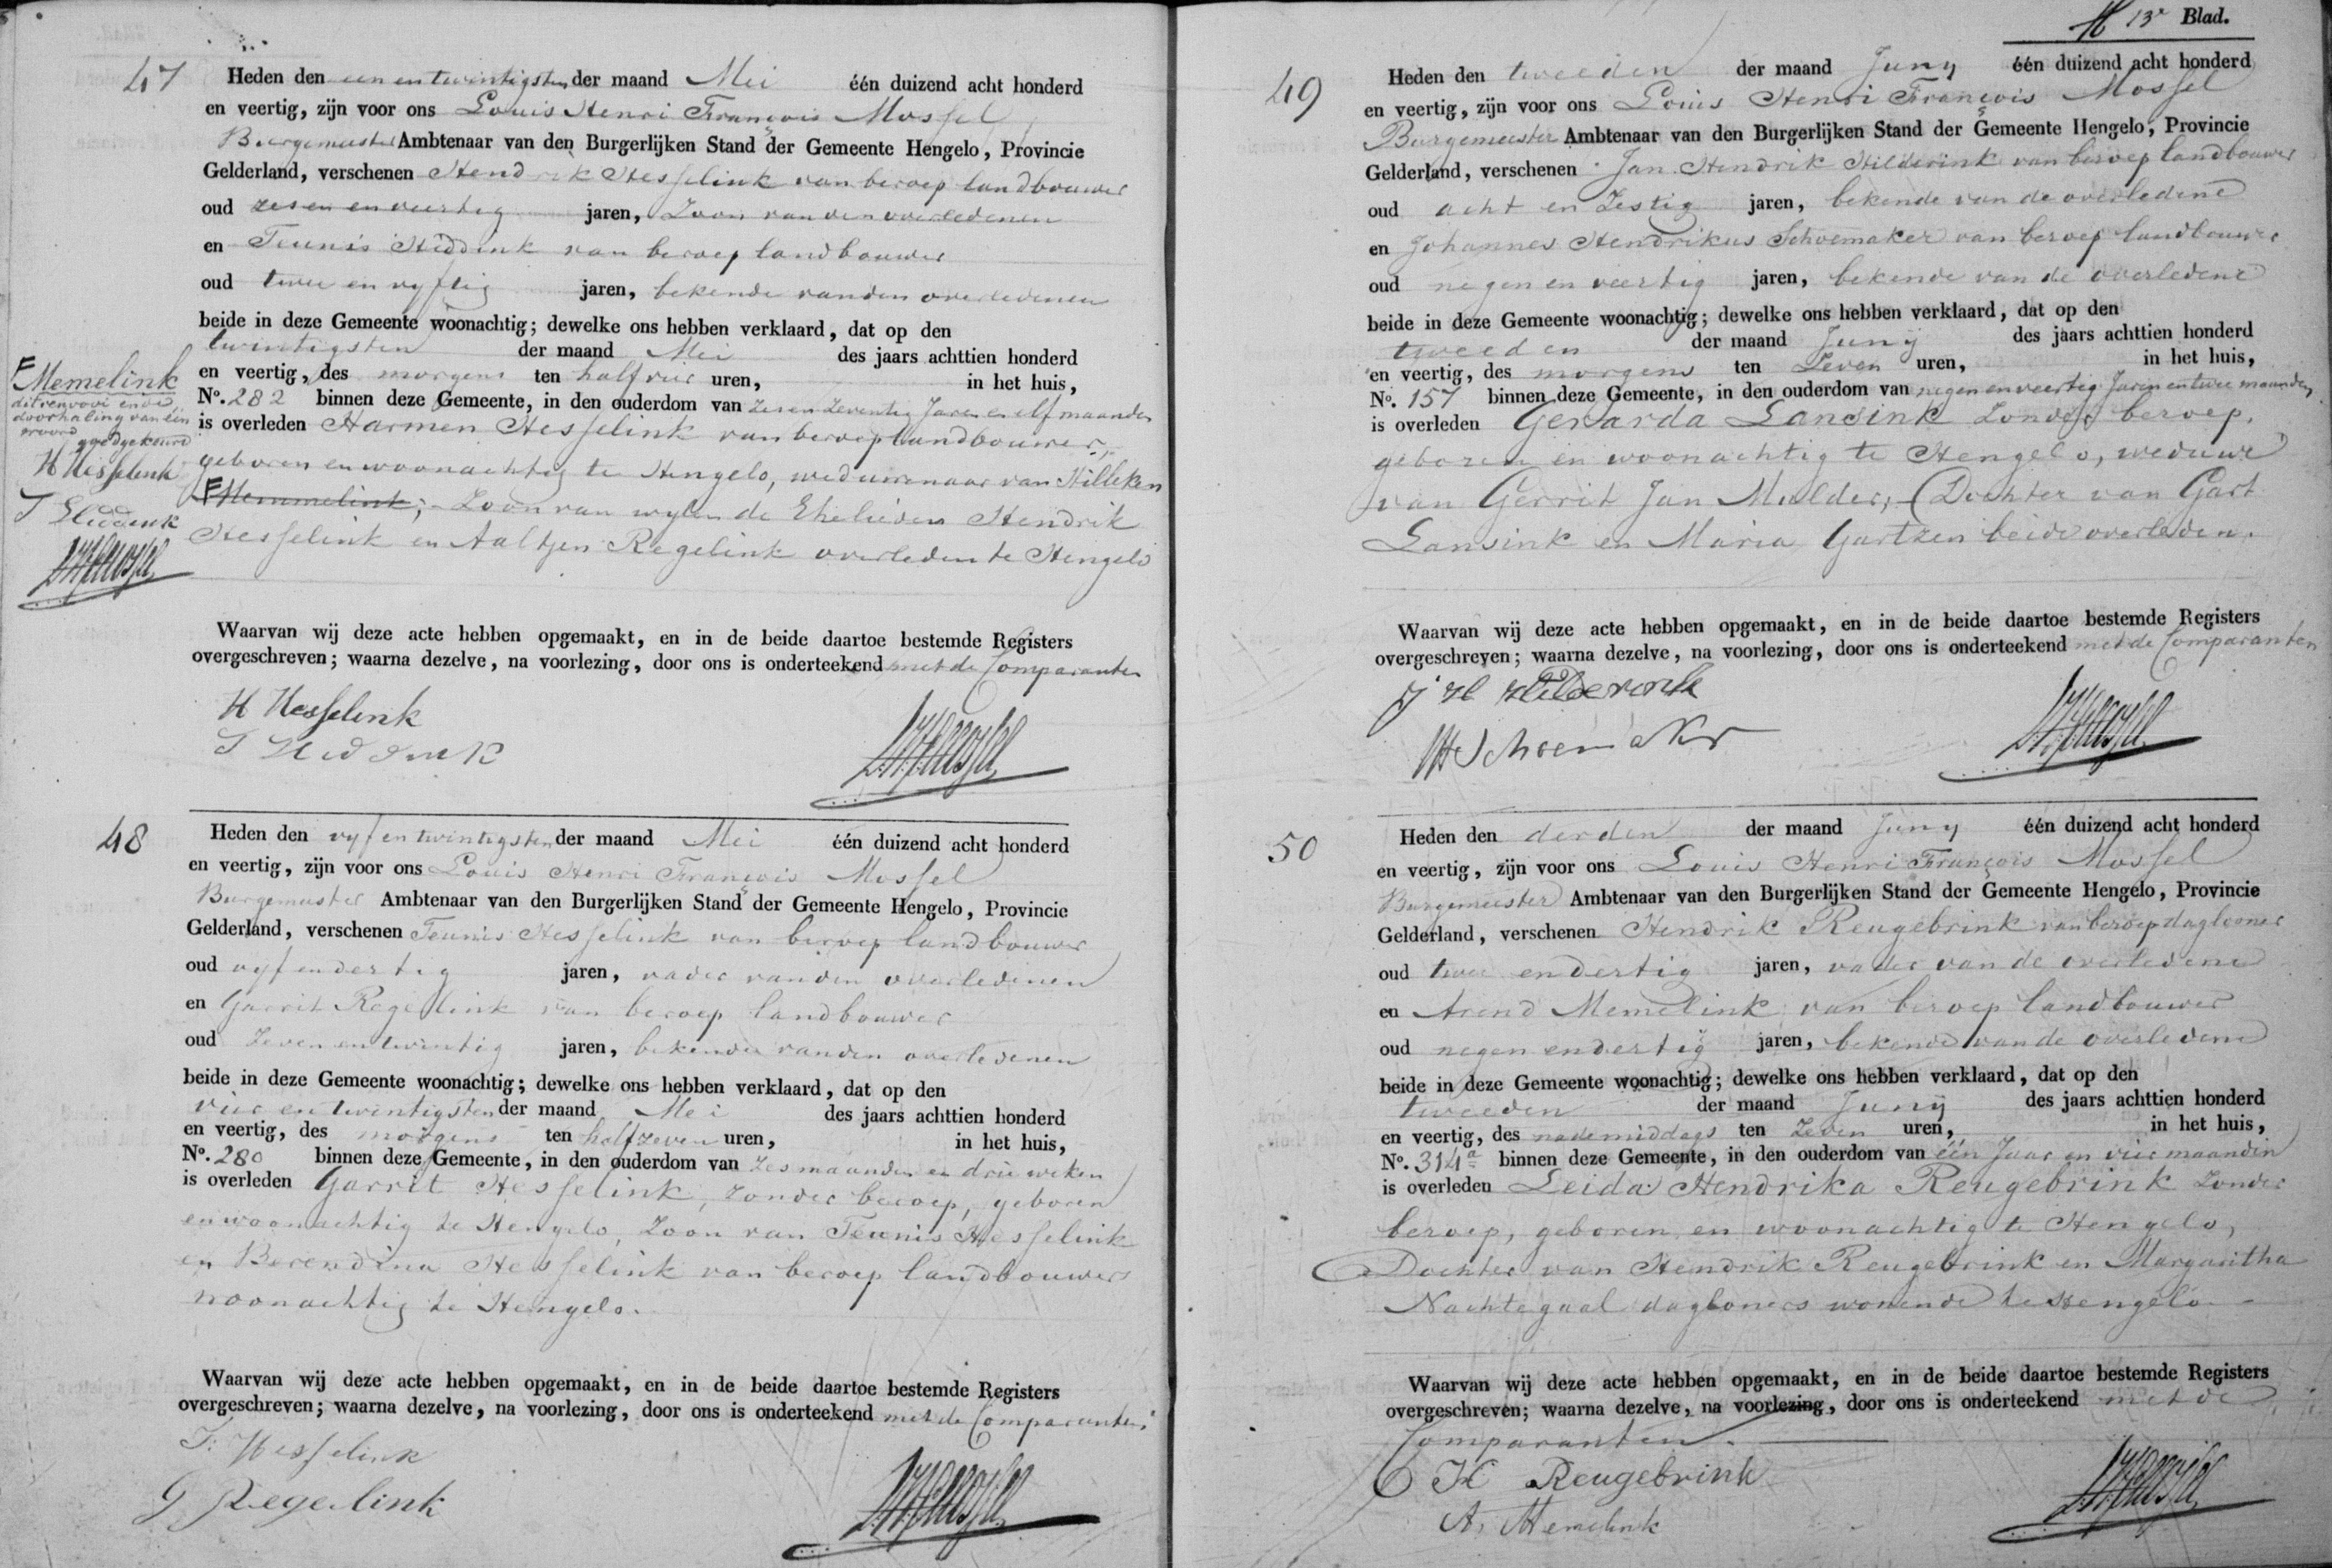 47
Heden den een en twintigsten der maand Mei één duizend acht honderd
en veertig, zijn voor ons Louis Henri François Mossel
Burgemeester Ambtenaar van den Burgerlijken Stand der Gemeente Hengelo, Provincie
Gelderland, verschenen Hendrik Hesselink van beroep landbouwer
oud zes en veertig jaren, Zoon van den overledenen
en Teunis Hiddink van beroep landbouwer
oud twee en vyftig jaren, bekende van den overledenen
beide in deze Gemeente woonachtig; dewelke ons hebben verklaard, dat op den
twintigsten der maand Mei des jaars achttien honderd
en veertig, des morgens ten half vier uren, in het huis,
No. 282 binnen deze Gemeente, in den ouderdom van zes en zeventig Jaren en elf maanden
is overleden Harmen Hesselink van beroep landbouwer,
geboren en woonachtig te Hengelo, weduwenaar van Hilleken
F Memmelink; Zoon van wylen de Ehelieden Hendrik
Hesselink en Aaltjen Regelink overleden te Hengelo
F Memelink
dit renvooi en de
doorhaling van één
woord goedgekeurd
H Hesselink
T Hiddink
L.H.F. Mossel
Waarvan wij deze acte hebben opgemaakt, en in de beide daartoe bestemde Registers
overgeschreven; waarna dezelve, na voorlezing, door ons is onderteekend met de Comparanten
H Hesselink
T Hiddink
L.H.F. Mossel
48
Heden den vyf en twintigsten der maand Mei één duizend acht honderd
en veertig, zijn voor ons Louis Henri François Mossel
Burgemeester Ambtenaar van den Burgerlijken Stand der Gemeente Hengelo, Provincie
Gelderland, verschenen Teunis Hesselink van beroep landbouwer
oud vyf en dertig jaren, vader van den overledenen
en Garrit Regelink van beroep landbouwer
oud Zeven en twintig jaren, bekende van den overledenen
beide in deze Gemeente woonachtig; dewelke ons hebben verklaard, dat op den
vier en twintigsten der maand Mei des jaars achttien honderd
en veertig, des morgens ten half zeven uren, in het huis,
No. 280 binnen deze Gemeente, in den ouderdom van zes maanden en drie weken
is overleden Garrit Hesselink, zonder beroep, geboren
en woonachtig te Hengelo, Zoon van Teunis Hesselink
en Berendina Hesselink van beroep landbouwers
woonachtig te Hengelo.
Waarvan wij deze acte hebben opgemaakt, en in de beide daartoe bestemde Registers
overgeschreven; waarna dezelve, na voorlezing, door ons is onderteekend met de Comparanten.
T. Hesselink
G Regelink
L.H.F. Mossel
13e Blad.
49
Heden den tweeden der maand Juny één duizend acht honderd
en veertig, zijn voor ons Louis Henri François Mossel
Burgemeester Ambtenaar van den Burgerlijken Stand der Gemeente Hengelo, Provincie
Gelderland, verschenen Jan Hendrik Hilderink van beroep landbouwer
oud acht en Zestig jaren, bekende van de overledene
en Johannes Hendrikus Schoemaker van beroep landbouwer
oud negen en veertig jaren, bekende van de overledene
beide in deze Gemeente woonachtig; dewelke ons hebben verklaard, dat op den
tweeden der maand Juny des jaars achttien honderd
en veertig, des morgens ten Zeven uren, in het huis,
No. 157 binnen deze Gemeente, in den ouderdom van negen en veertig Jaren en twee maanden
is overleden Gerarda Lansink Zonder beroep,
geboren en woonachtig te Hengelo, weduwe
van Gerrit Jan Mulder; Dochter van Gart
Lansink en Maria Gartzen beide overleden.
Waarvan wij deze acte hebben opgemaakt, en in de beide daartoe bestemde Registers
overgeschreven; waarna dezelve, na voorlezing, door ons is onderteekend met de Comparanten
J H Hilderink
JH Schoemaker
L.H.F. Mossel
50
Heden den derden der maand Juny één duizend acht honderd
en veertig, zijn voor ons Louis Henri François Mossel
Burgemeester Ambtenaar van den Burgerlijken Stand der Gemeente Hengelo, Provincie
Gelderland, verschenen Hendrik Reugebrink van beroep dagloner
oud twee en dertig jaren, vader van de overledene
en Arend Memelink van beroep landbouwer
oud negen en dertig jaren, bekende van de overledene
beide in deze Gemeente woonachtig; dewelke ons hebben verklaard, dat op den
tweeden der maand Juny des jaars achttien honderd
en veertig, des nademiddags ten Zeven uren, in het huis,
No. 314a binnen deze Gemeente, in den ouderdom van één Jaar en vier maanden
is overleden Leida Hendrika Reugebrink Zonder
beroep, geboren en woonachtig te Hengelo,
Dochter van Hendrik Reugebrink en Margaritha
Nachtegaal dagloners wonende te Hengelo.
Waarvan wij deze acte hebben opgemaakt, en in de beide daartoe bestemde Registers
overgeschreven; waarna dezelve, na voorlezing, door ons is onderteekend met de
Comparanten.
H Reugebrink
A. Memelink
L.H.F. Mossel